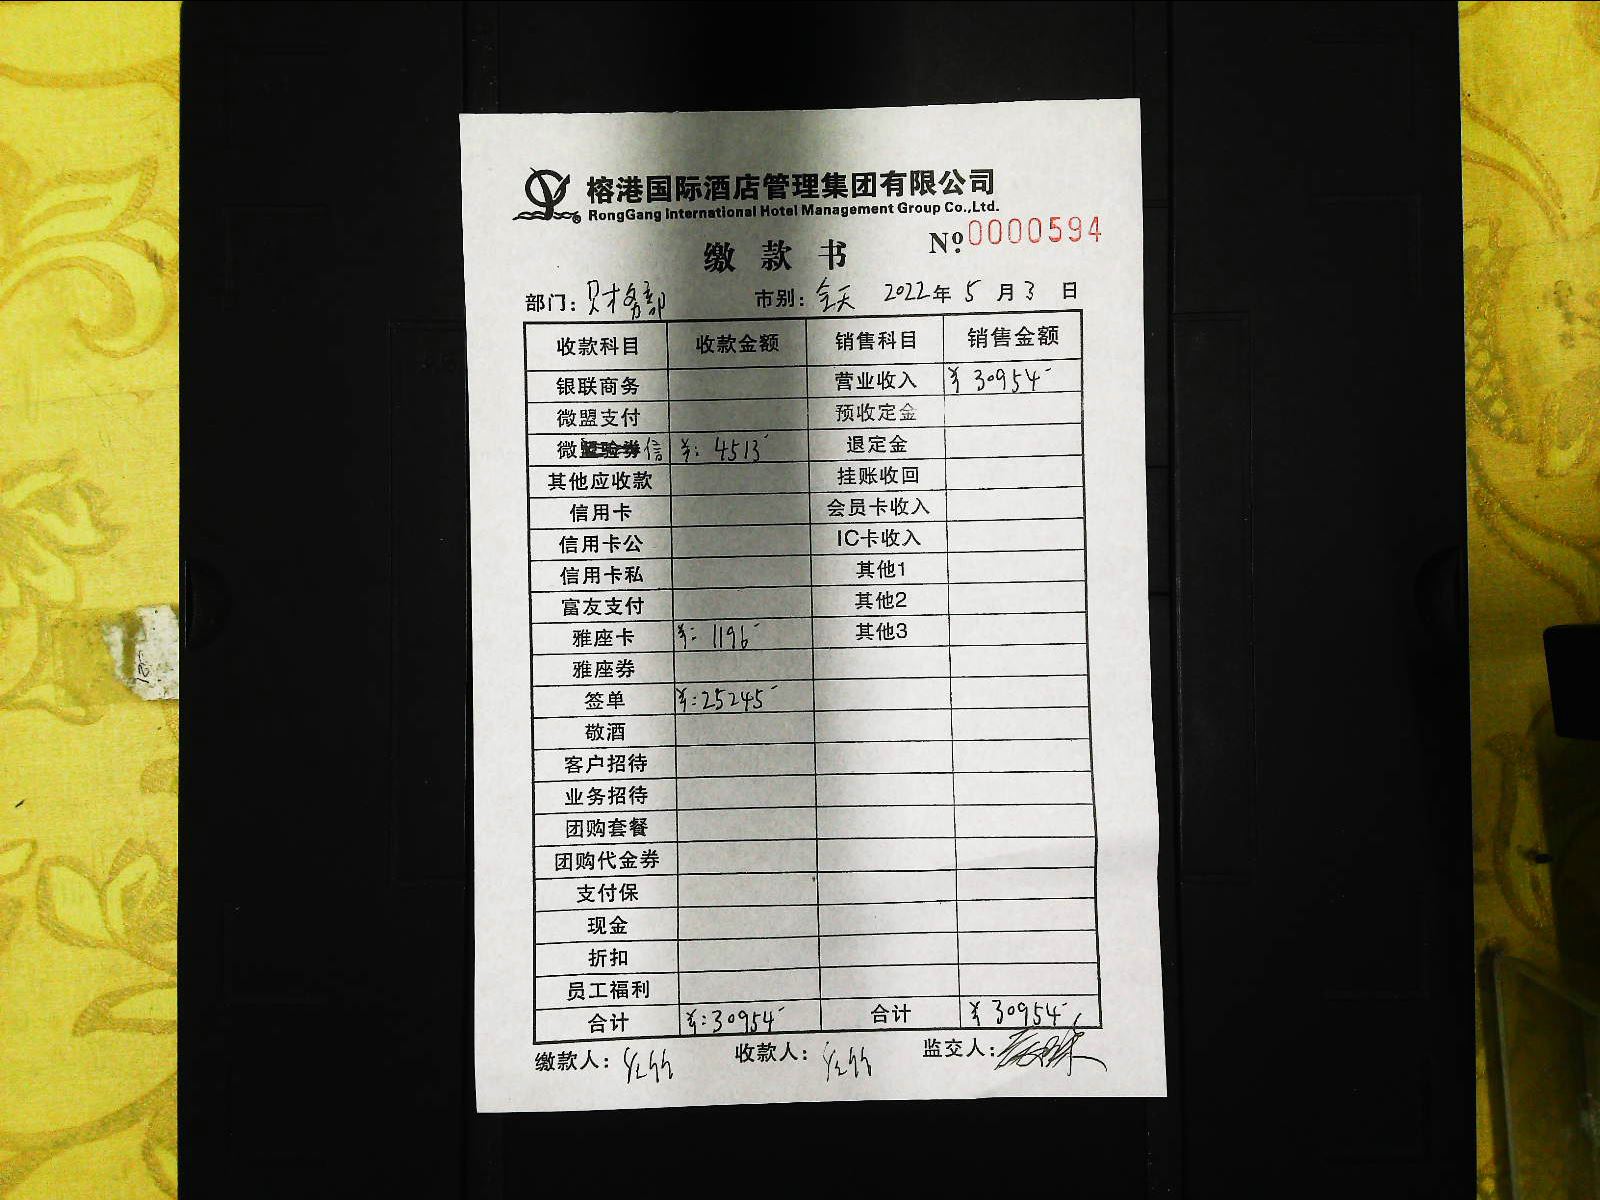 榕港国际酒店管理集团有限公司
RongGang International Hotel Management Group Co.,Ltd.
缴款书 Nº 0000594
部门：财务部 市别：全天 2022年5月3日
收款科目 收款金额 销售科目 销售金额
银联商务 营业收入 ¥30954-
微盟支付 预收定金
微盟验券信 ¥：4513- 退定金
其他应收款 挂账收回
信用卡 会员卡收入
信用卡公 IC卡收入
信用卡私 其他1
富友支付 其他2
雅座卡 ¥：1196- 其他3
雅座券
签单 ¥：25245-
敬酒
客户招待
业务招待
团购套餐
团购代金券
支付保
现金
折扣
员工福利
合计 ¥：30954- 合计 ¥30954-
缴款人： 收款人： 监交人：